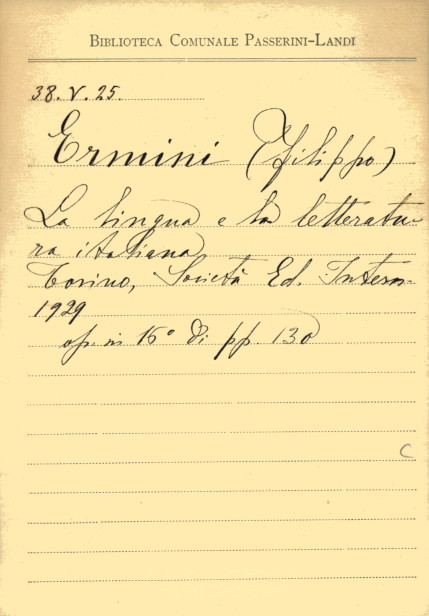 BIBLIOTECA COMUNALE PASSERINI-LANDI
38.V.25.
Ermini (Filippo)
La lingua e la letteratu-
ra italiana
Torino, Società Ed. Intern.
1929
op. in 16° di pp. 130
C